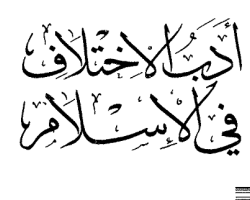 أَدَبُ الاِخْتِلافِ
في الإِسْلامِ